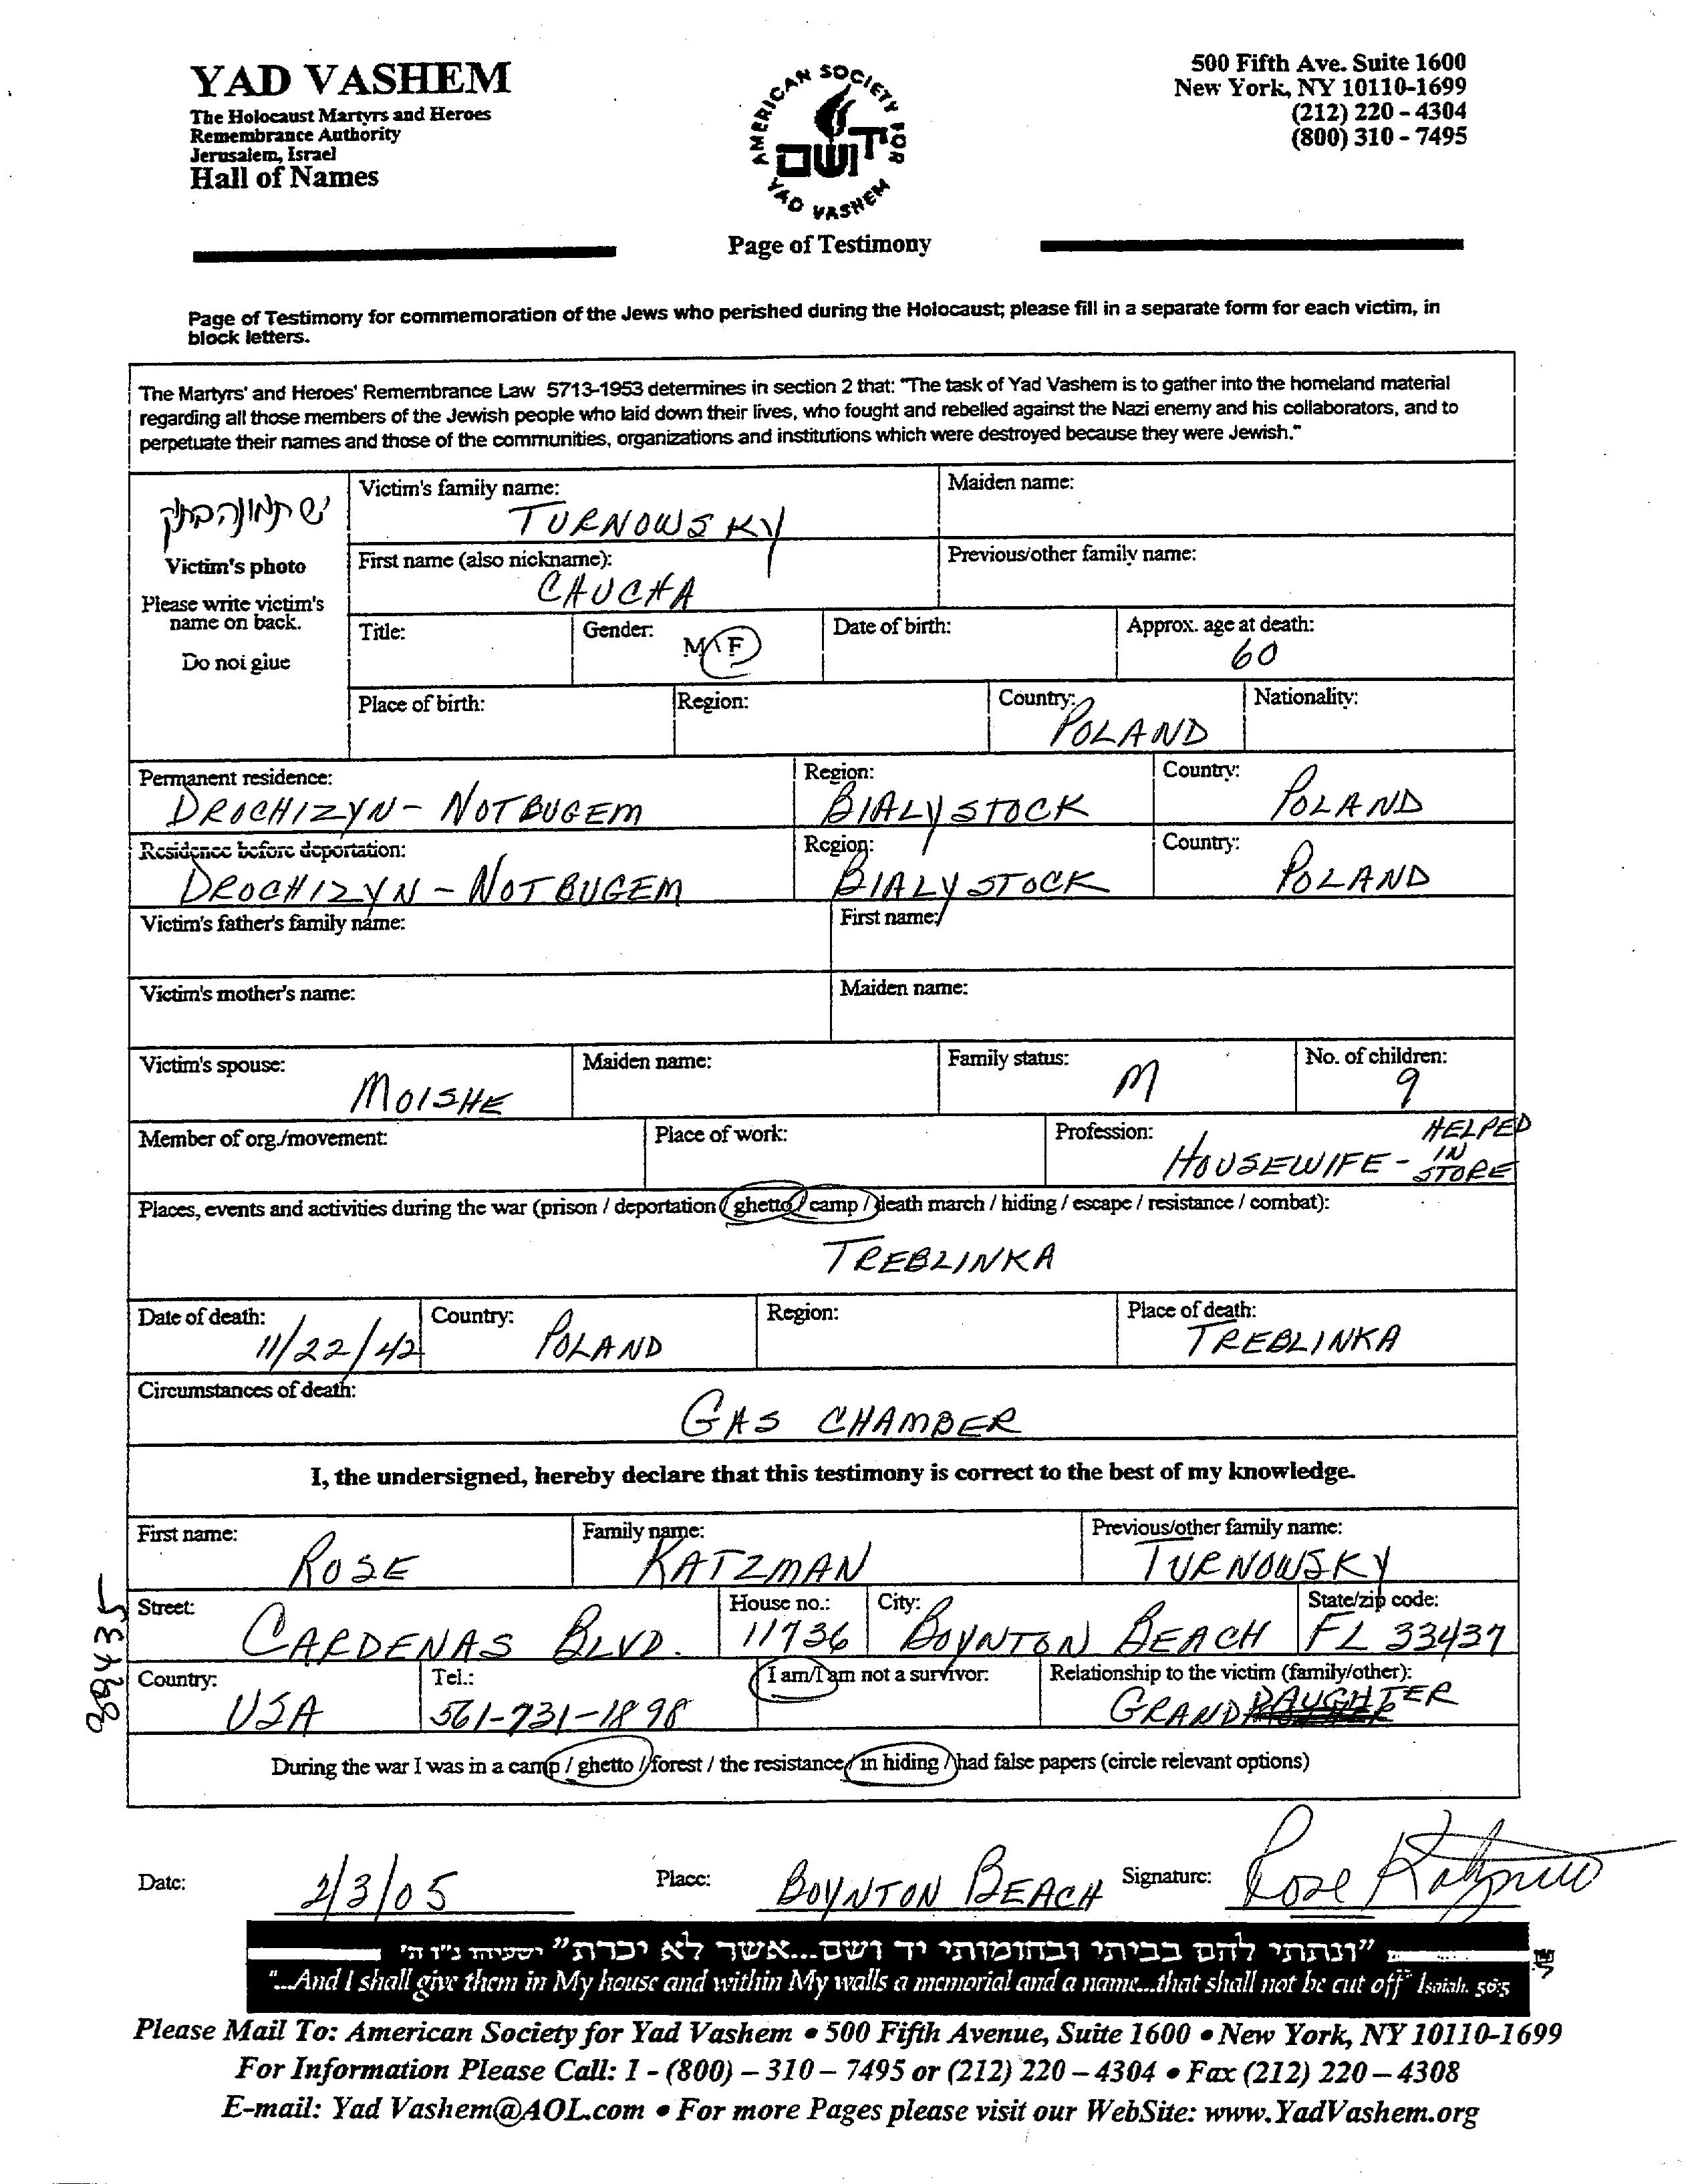 YAD VASHEM
The Holocaust Martyrs and Heroes
Remembrance Authority
Jerusalem, Israel
Hall of Names
AMERICAN SOCIETY FOR
יד ושם
YAD VASHEM
500 Fifth Ave. Suite 1600
New York, NY 10110-1699
(212) 220 - 4304
(800) 310 - 7495
Page of Testimony
Page of Testimony for commemoration of the Jews who perished during the Holocaust; please fill in a separate form for each victim, in
block letters.
The Martyrs' and Heroes' Remembrance Law 5713-1953 determines in section 2 that: "The task of Yad Vashem is to gather into the homeland material
regarding all those members of the Jewish people who laid down their lives, who fought and rebelled against the Nazi enemy and his collaborators, and to
perpetuate their names and those of the communities, organizations and institutions which were destroyed because they were Jewish."
יש תמונה בתיק
Victim's photo
Please write victim's
name on back.
Do not glue
Victim's family name: TURNOWSKY
Maiden name:
First name (also nickname): CAUCHA
Previous/other family name:
Title:
Gender: M \ F
Date of birth:
Approx. age at death: 60
Place of birth:
Region:
Country: POLAND
Nationality:
Permanent residence: DROCHIZYN - NOTBUGEM
Region: BIALYSTOCK
Country: POLAND
Residence before deportation: DROCHIZYN - NOTBUGEM
Region: BIALYSTOCK
Country: POLAND
Victim's father's family name:
First name:
Victim's mother's name:
Maiden name:
Victim's spouse: MOISHE
Maiden name:
Family status: M
No. of children: 9
Member of org./movement:
Place of work:
Profession: HOUSEWIFE - HELPED IN STORE
Places, events and activities during the war (prison / deportation / ghetto / camp / death march / hiding / escape / resistance / combat):
TREBLINKA
Date of death: 11/22/42
Country: POLAND
Region:
Place of death: TREBLINKA
Circumstances of death: GAS CHAMBER
I, the undersigned, hereby declare that this testimony is correct to the best of my knowledge.
First name: ROSE
Family name: KATZMAN
Previous/other family name: TURNOWSKY
Street: CARDENAS BLVD.
House no.: 11736
City: BOYNTON BEACH
State/zip code: FL 33437
Country: USA
Tel.: 561-731-1898
I am/I am not a survivor:
Relationship to the victim (family/other): GRANDDAUGHTER
During the war I was in a camp / ghetto / forest / the resistance / in hiding / had false papers (circle relevant options)
Date: 2/3/05
Place: BOYNTON BEACH
Signature: Rose Katzman
"ונתתי להם בביתי ובחומותי יד ושם...אשר לא יכרת" ישעיהו נ"ו ה'
"...And I shall give them in My house and within My walls a memorial and a name...that shall not be cut off" Isaiah. 56:5
Please Mail To: American Society for Yad Vashem • 500 Fifth Avenue, Suite 1600 • New York, NY 10110-1699
For Information Please Call: 1 - (800) – 310 – 7495 or (212) 220 – 4304 • Fax (212) 220 – 4308
E-mail: Yad Vashem@AOL.com • For more Pages please visit our WebSite: www.YadVashem.org